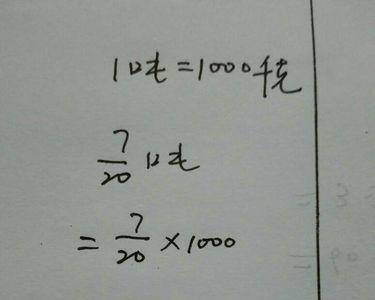 1吨=1000千克
7/20 吨
= 7/20 × 1000